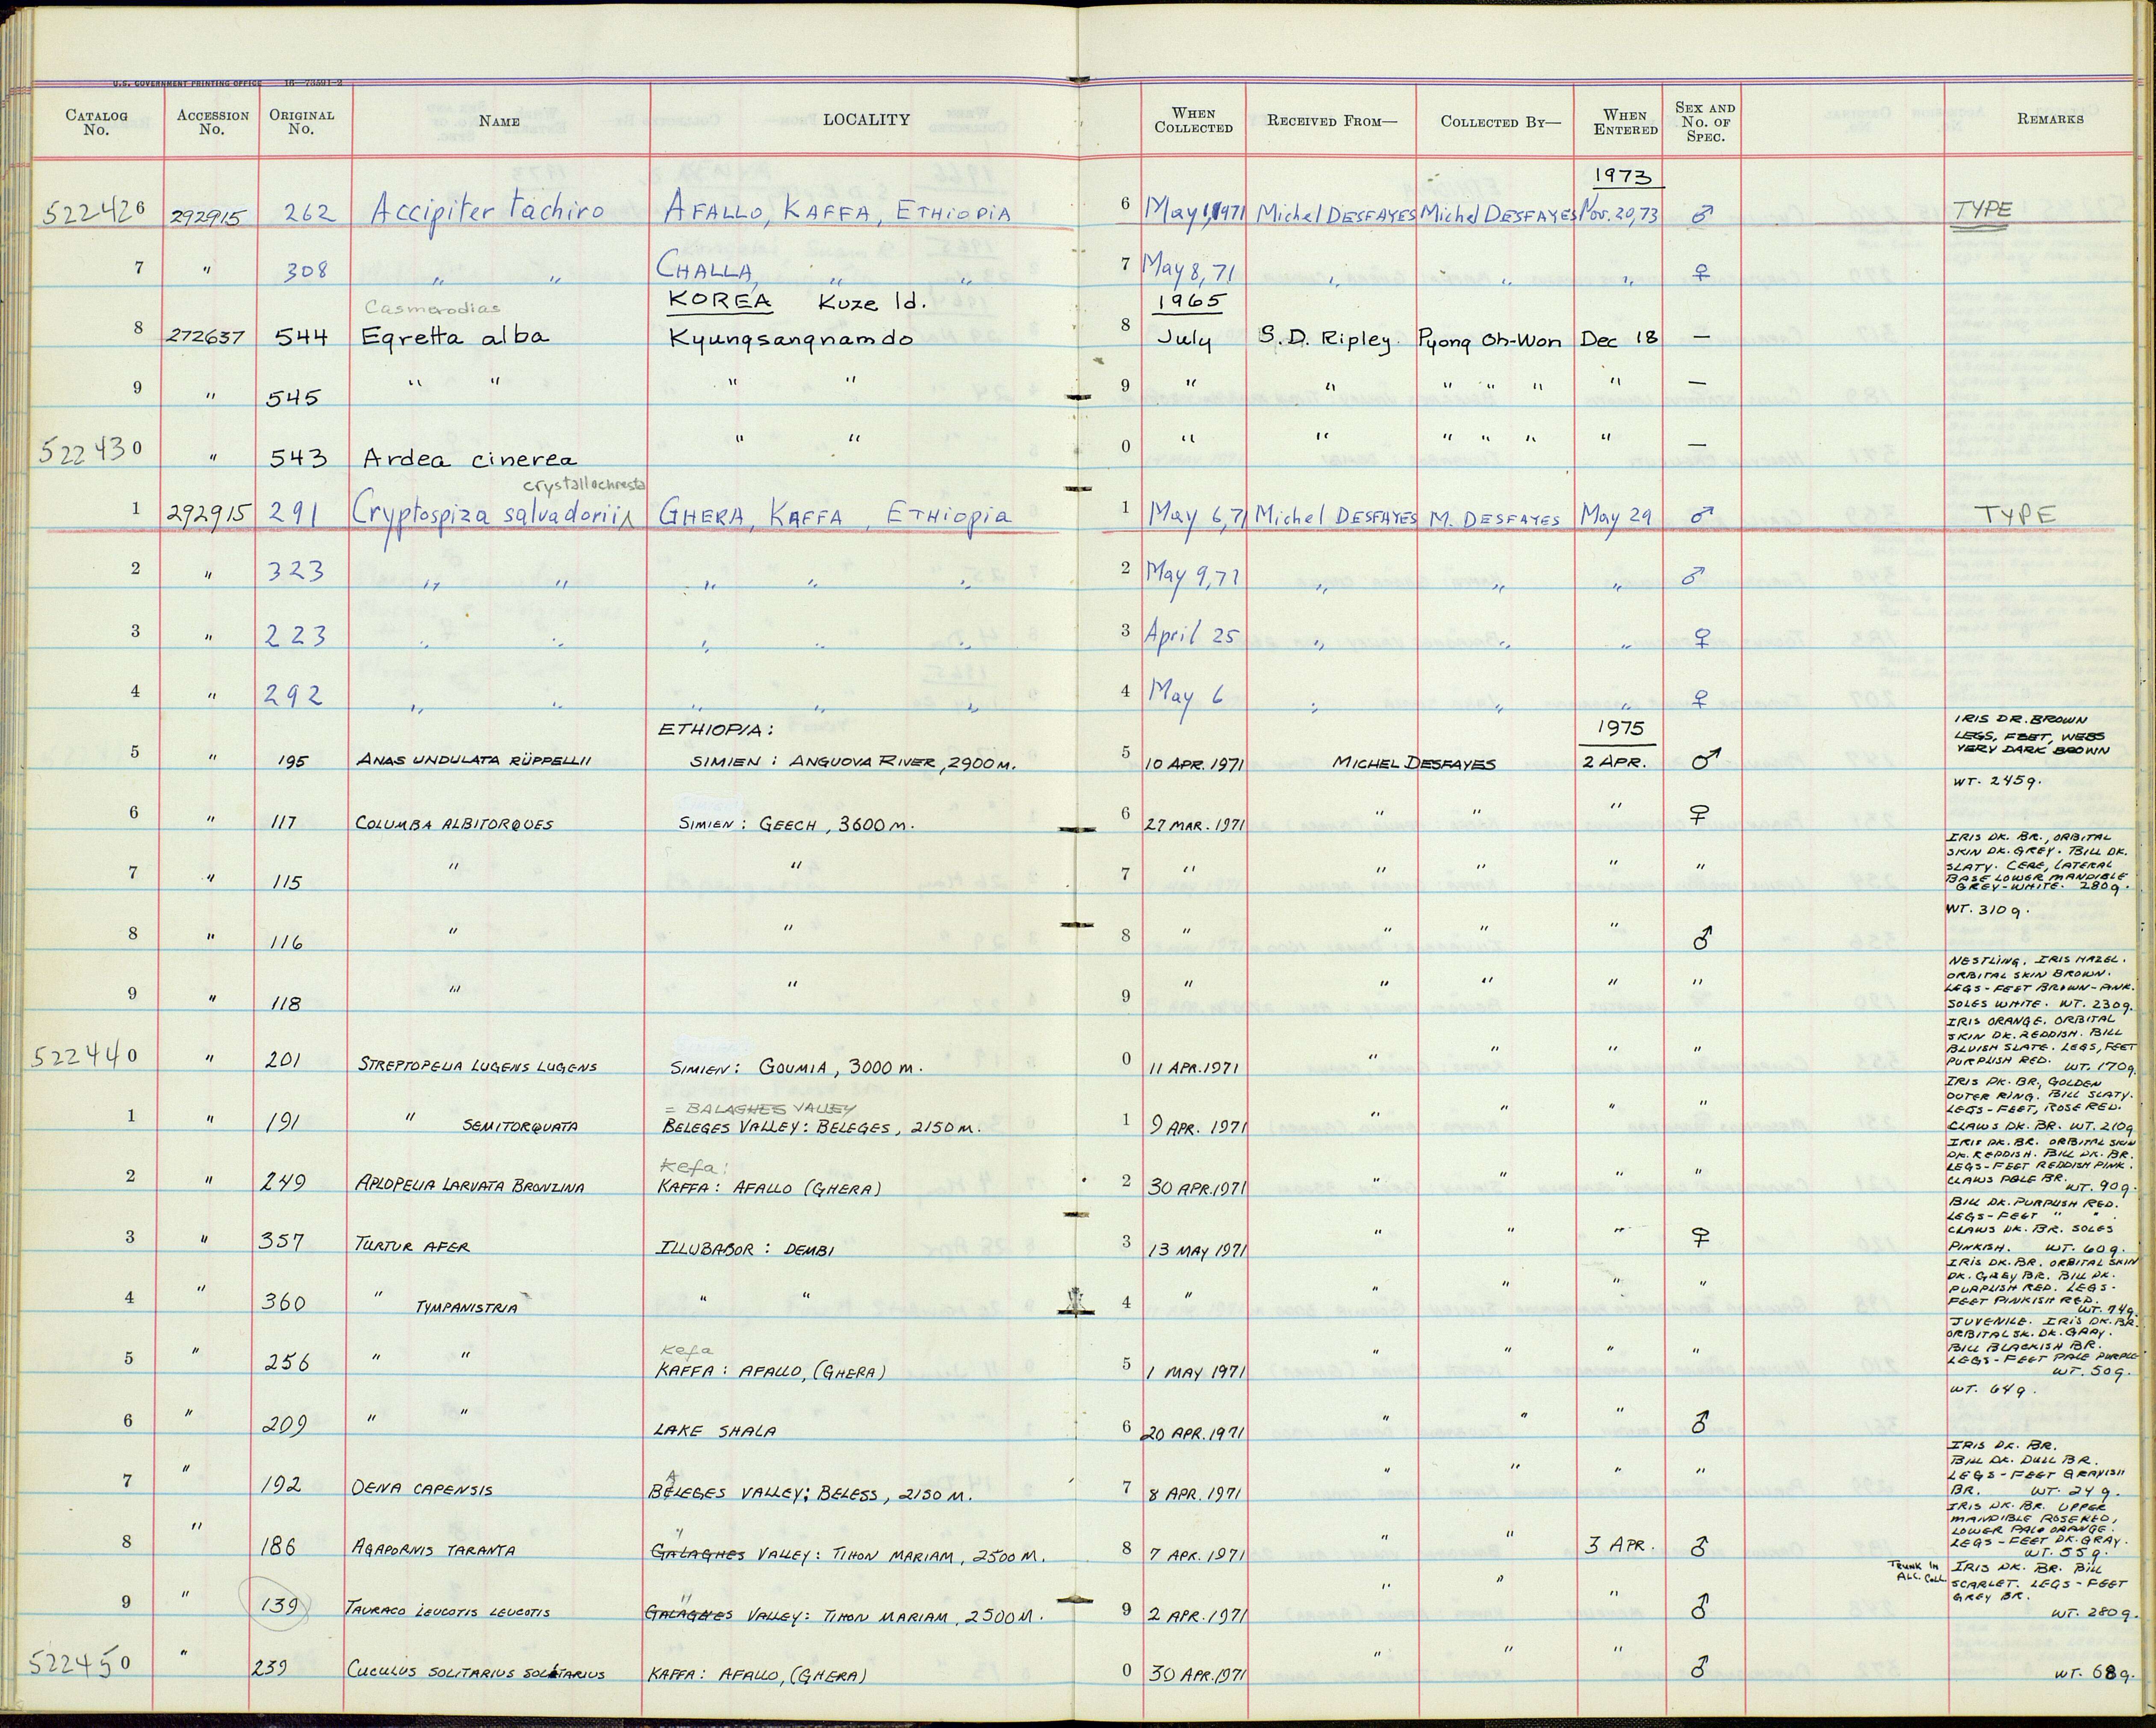 U.S. GOVERNMENT PRINTING OFFICE 16—73591-2
CATALOG No. ACCESSION No. ORIGINAL No. NAME LOCALITY WHEN COLLECTED RECEIVED FROM— COLLECTED BY— WHEN ENTERED SEX AND No. OF SPEC. REMARKS
1973
522426 292915 262 Accipiter tachiro AFALLO, KAFFA, ETHIOPIA 6 May 1, 1971 Michel DESFAYES Michel DESFAYES Nov. 20, 73 ♂ TYPE
7 " 308 " " CHALLA, " " 7 May 8, 71 " " " ♀
Casmerodias KOREA Kuze Id. 1965
8 272637 544 Egretta alba Kyungsangnamdo 8 July S. D. Ripley Pyong Oh-Won Dec 18 —
9 " 545 " " " " 9 " " " " " " —
522430 " 543 Ardea cinerea " " 0 " " " " " " —
crystallochresta
1 292915 291 Cryptospiza salvadorii GHERA, KAFFA, ETHiopia 1 May 6, 71 Michel DESFAYES M. DESFAYES May 29 ♂ TYPE
2 " 323 " " " " " 2 May 9, 71 " " " ♂
3 " 223 " " " " " 3 April 25 " " " ♀
4 " 292 " " " " " 4 May 6 " " " ♀
ETHIOPIA: 1975
5 " 195 ANAS UNDULATA RÜPPELLII SIMIEN: ANGUOVA RIVER, 2900 M. 5 10 APR. 1971 MICHEL DESFAYES 2 APR. ♂
IRIS DR. BROWN
LEGS, FEET, WEBS
VERY DARK BROWN
6 " 117 COLUMBA ALBITORQUES SIMIEN: GEECH, 3600 M. 6 27 MAR. 1971 " " " ♀
WT. 245g.
7 " 115 " " 7 " " " " "
IRIS DK. BR., ORBITAL
SKIN DK. GREY. BILL DK.
SLATY. CERE, LATERAL
BASE LOWER MANDIBLE
GREY-WHITE. 280g.
8 " 116 " " 8 " " " " ♂
WT. 310g.
9 " 118 " " 9 " " " " "
NESTLING. IRIS HAZEL.
ORBITAL SKIN BROWN.
LEGS-FEET BROWN-PINK.
SOLES WHITE. WT. 230g.
522440 " 201 STREPTOPELIA LUGENS LUGENS SIMIEN: GOUMIA, 3000 M. 0 11 APR. 1971 " " " "
IRIS ORANGE. ORBITAL
SKIN DK. REDDISH. BILL
BLUISH SLATE. LEGS, FEET
PURPLISH RED. WT. 170g.
= BALAGHES VALLEY
1 " 191 " SEMITORQUATA BELEGES VALLEY: BELEGES, 2150 M. 1 9 APR. 1971 " " " "
IRIS DK. BR, GOLDEN
OUTER RING. BILL SLATY.
LEGS-FEET, ROSE RED.
CLAWS DK. BR. WT. 210g
Kefa:
2 " 249 APLOPELIA LARVATA BRONZINA KAFFA: AFALLO (GHERA) 2 30 APR. 1971 " " " "
IRIS DK. BR. ORBITAL SKIN
DK. REDDISH. BILL DK. BR.
LEGS-FEET REDDISH PINK.
CLAWS PALE BR. WT. 90g.
3 " 357 TURTUR AFER ILLUBABOR: DEMBI 3 13 MAY 1971 " " " ♀
BILL DK. PURPLISH RED.
LEGS-FEET " " .
CLAWS DK. BR. SOLES
PINKISH. WT. 60g.
4 " 360 " TYMPANISTRIA " " 4 " " " " "
IRIS DK. BR. ORBITAL SKIN
DK. GREY BR. BILL DK.
PURPLISH RED. LEGS-
FEET PINKISH RED.
WT. 74g.
Kefa
5 " 256 " " KAFFA: AFALLO, (GHERA) 5 1 MAY 1971 " " " "
JUVENILE. IRIS DK. BR.
ORBITAL SK. DK. GRAY.
BILL BLACKISH BR.
LEGS-FEET PALE PURPLE
WT. 50g.
6 " 209 " " LAKE SHALA 6 20 APR. 1971 " " " ♂
WT. 64g.
A
7 " 192 OENA CAPENSIS BELEGES VALLEY: BELESS, 2150 M. 7 8 APR. 1971 " " " "
IRIS DK. BR.
BILL DK. DULL BR.
LEGS-FEET GRAYISH
BR. WT. 24g.
"
8 " 186 AGAPORNIS TARANTA GALAGHES VALLEY: TIHON MARIAM, 2500 M. 8 7 APR. 1971 " " 3 APR. ♂
IRIS DK. BR. UPPER
MANDIBLE ROSE RED,
LOWER PALE ORANGE.
LEGS-FEET DK. GRAY.
WT. 55g.
"
9 " 139 TAURACO LEUCOTIS LEUCOTIS GALAGHES VALLEY: TIHON MARIAM, 2500 M. 9 2 APR. 1971 " " " ♂
TRUNK IN
ALC. COLL.
IRIS DK. BR. BILL
SCARLET. LEGS-FEET
GREY BR.
WT. 280g.
522450 " 239 CUCULUS SOLITARIUS SOLITARIUS KAFFA: AFALLO, (GHERA) 0 30 APR. 1971 " " " ♂ WT. 68g.